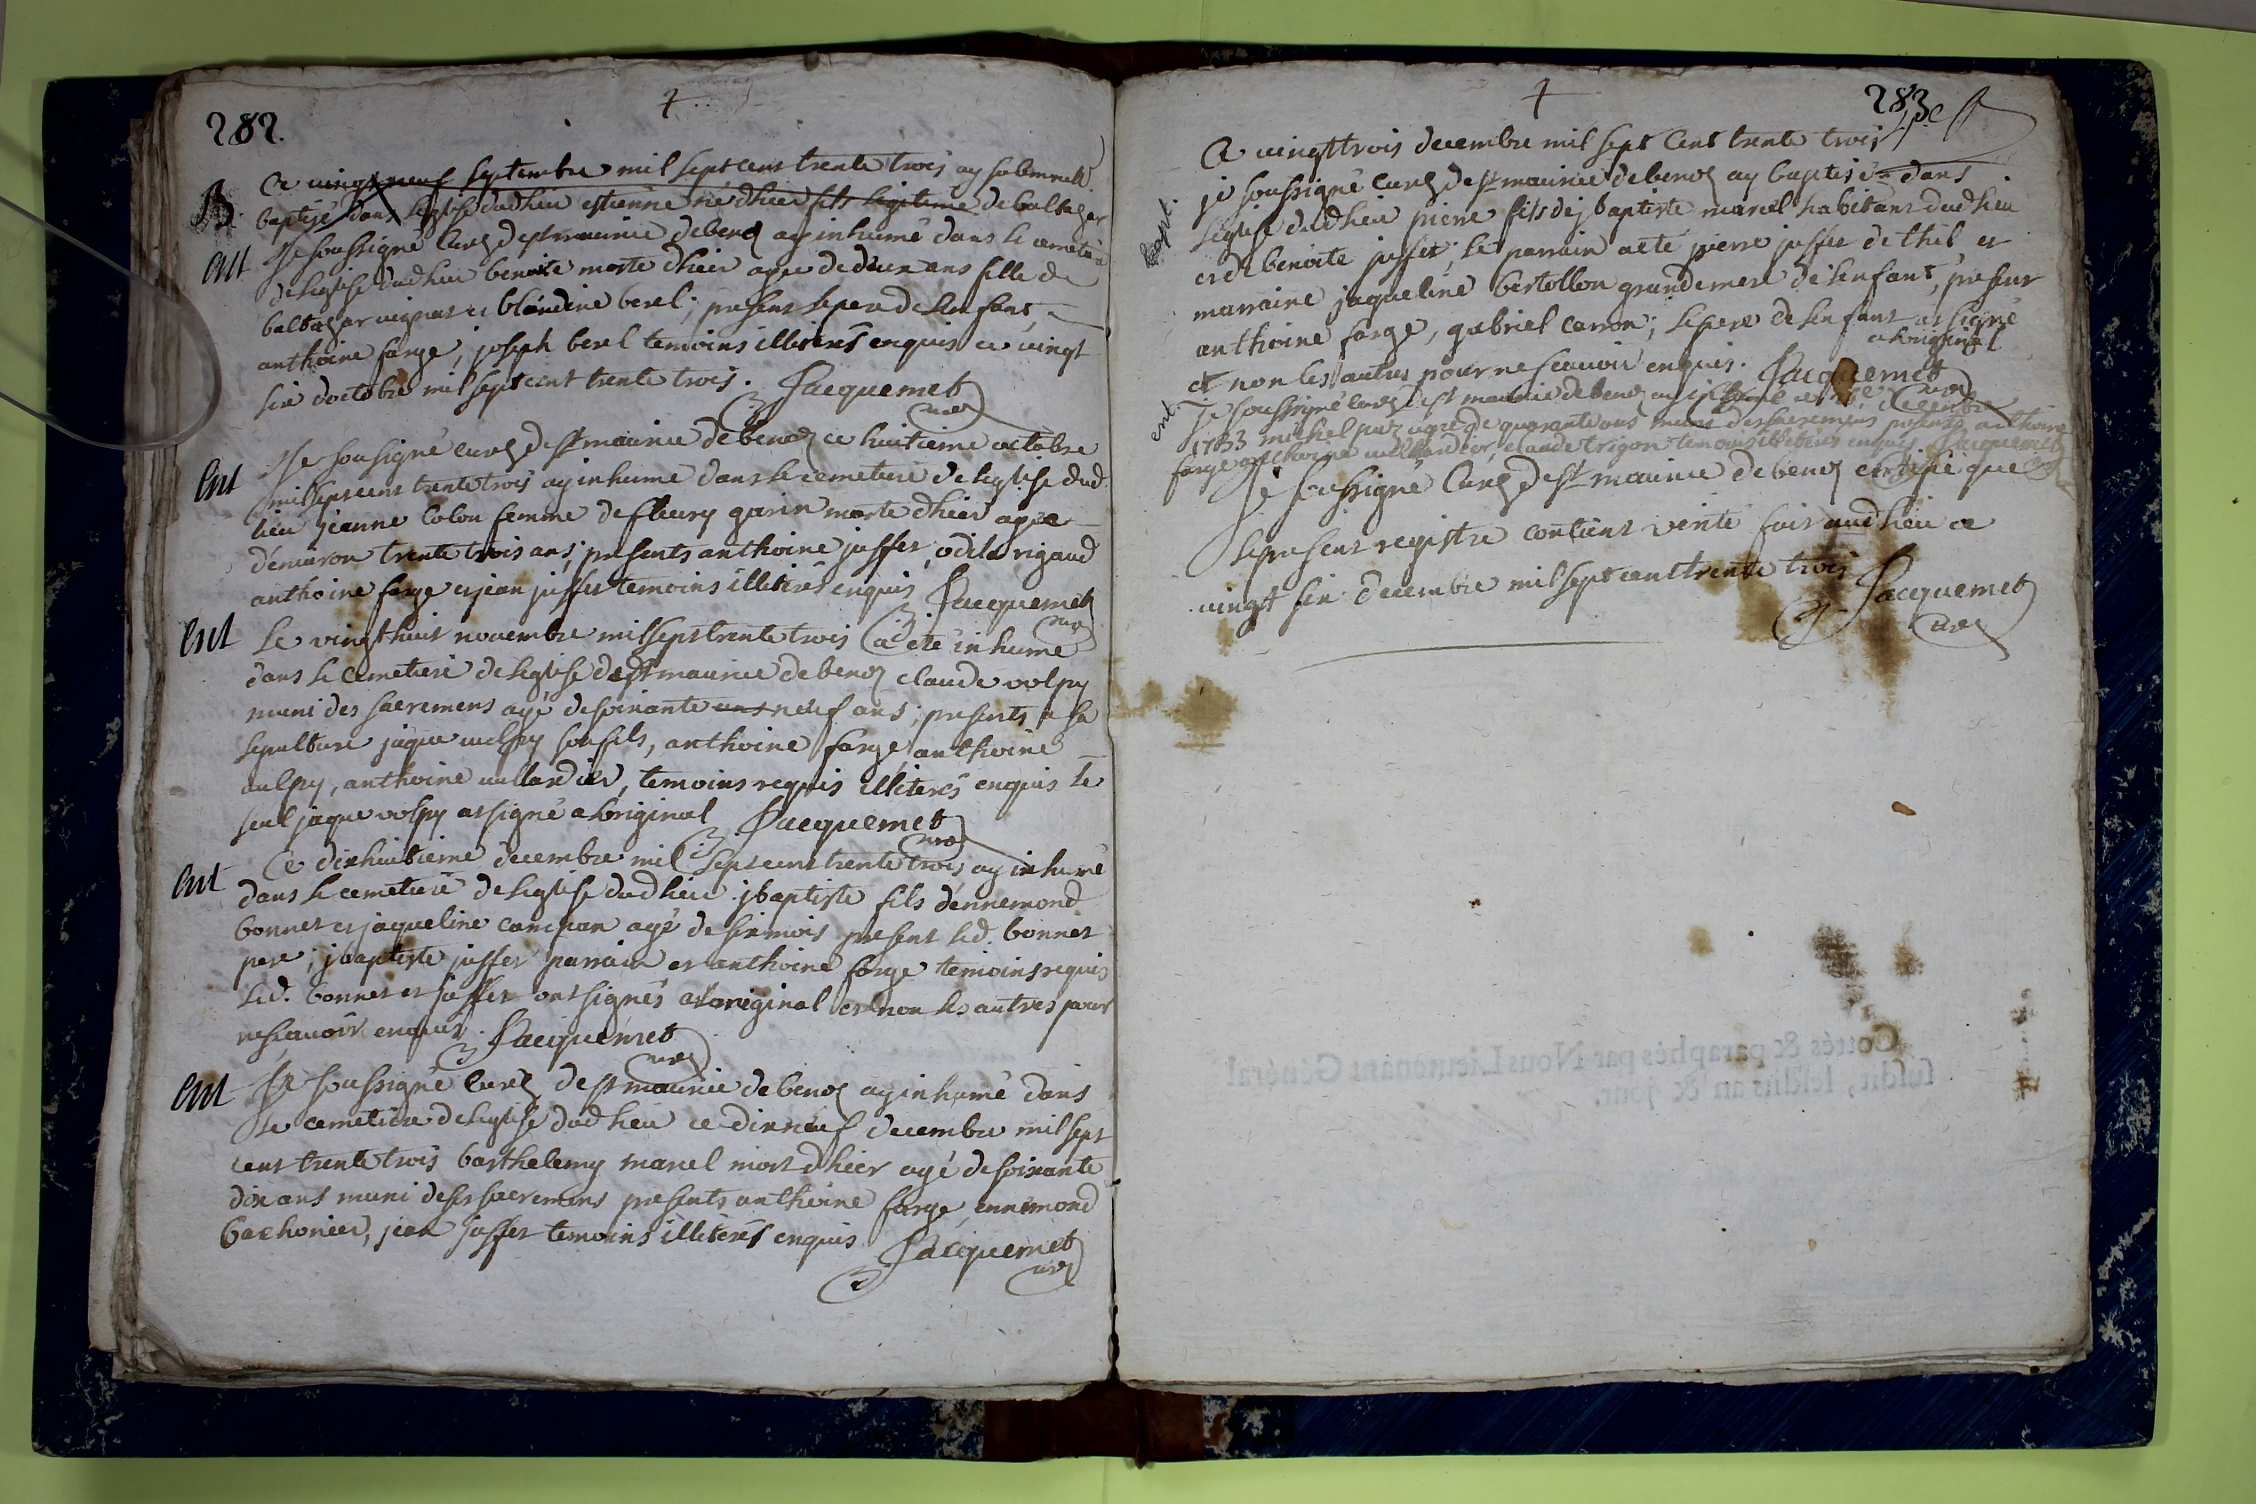 282.
B. Ce vingt neuf septembre mil sept cent trente trois ay solemnelt
baptisé dans leglise dudlieu estienne né dhier fils legitime de baltazar
ent Je soussigné curé de st maurice de benoz ay inhumé dans le cemetiere
de leglise dud lieu benoite morte dhier agée de deux ans fille de
baltazar et blandine berel ; present le pere de lenfant
anthoine farge, joseph berel temoins illiterés enquis ce vingt
six doctobre mil sept cent trente trois. Jacquemet
curé
Je sousigné curé de st maurice de benoz ce huitieme octobre
ent mil sept cent trente trois ay inhumé dans le cemetiere de leglise dud.
lieu jeanne colon femme de fleury garin morte dhier agée
denviron trente trois ans, presents anthoine juffet, odila rigaud
anthoine farge et jean juffet temoins illiterés enquis Jacquemet
curé
ent Le vingt huit novembre mil sept trente trois a eté inhumé
dans le cemetiere de leglise de st maurice de benoz claude volpy
muni des sacremens agé de soixante ans neuf ans ; presents a sa
sepulture jaque vulpy son fils, anthoine farge, anthoine
vulpy, anthoine vullardier, temoins requis illiterés enquis le
seul jaque volpy at signé a loriginal Jacquemet
curé
ent Ce dixhuitieme decembre mil sept cent trente trois ay inhumé
dans le cemetiere de leglise dud lieu jbaptiste fils dennemond
bonnet et jaqueline campan agé de six mois present led. bonnet
pere ; jbaptiste juffet parrain et anthoine farge temoins requis
led. bonnet et juffet ont signés a loriginal et non les autres pour
ne scavoir enquis. Jacquemet
curé
ent Je soussigné curé de st maurice de benoz ay inhumé dans
le cemetiere de leglise dud lieu ce dix neuf decembre mil sept
cent trente trois barthelemy marcel mort dhier agé de soixante
dix ans muni de ses sacremens presents anthoine farge, ennemond
bachonier, jean juffet temoins illiterés enquis Jacquemet
curé
283
Ce vingt trois decembre mil sept cent trente trois
bapt. je soussigné curé de st maurice de benoz ay baptisé dans
leglise dud lieu pierre fils de jbaptiste marcel habitant dud lieu
et de benoite juffet, le parrain a eté pierre juffet de thil et
marraine jaqueline bertollon grandemere de lenfant, present
anthoine farge, gabriel carron ; le pere de lenfant at signé
a loriginal
et non les autres pour ne scavoir enquis. Jacquemet
curé
ent. Je soussigné curé de st maurice de benoz ay inhumé ce decembre
1733 michel agé de quarante ans muni des sacremens presents anthoine
farge anthoine vullardier, claude trigon temoins illiterés enquis Jacquemet
Je soussigné curé de st maurice de benoz certifie que
le present registre contient verité fait audlieu ce
vingt six decembre mil sept cent trente trois
Jacquemet
curé
Cottés & paraphés par Nous Lieutenant Général
susdit, lesdits an & jour.